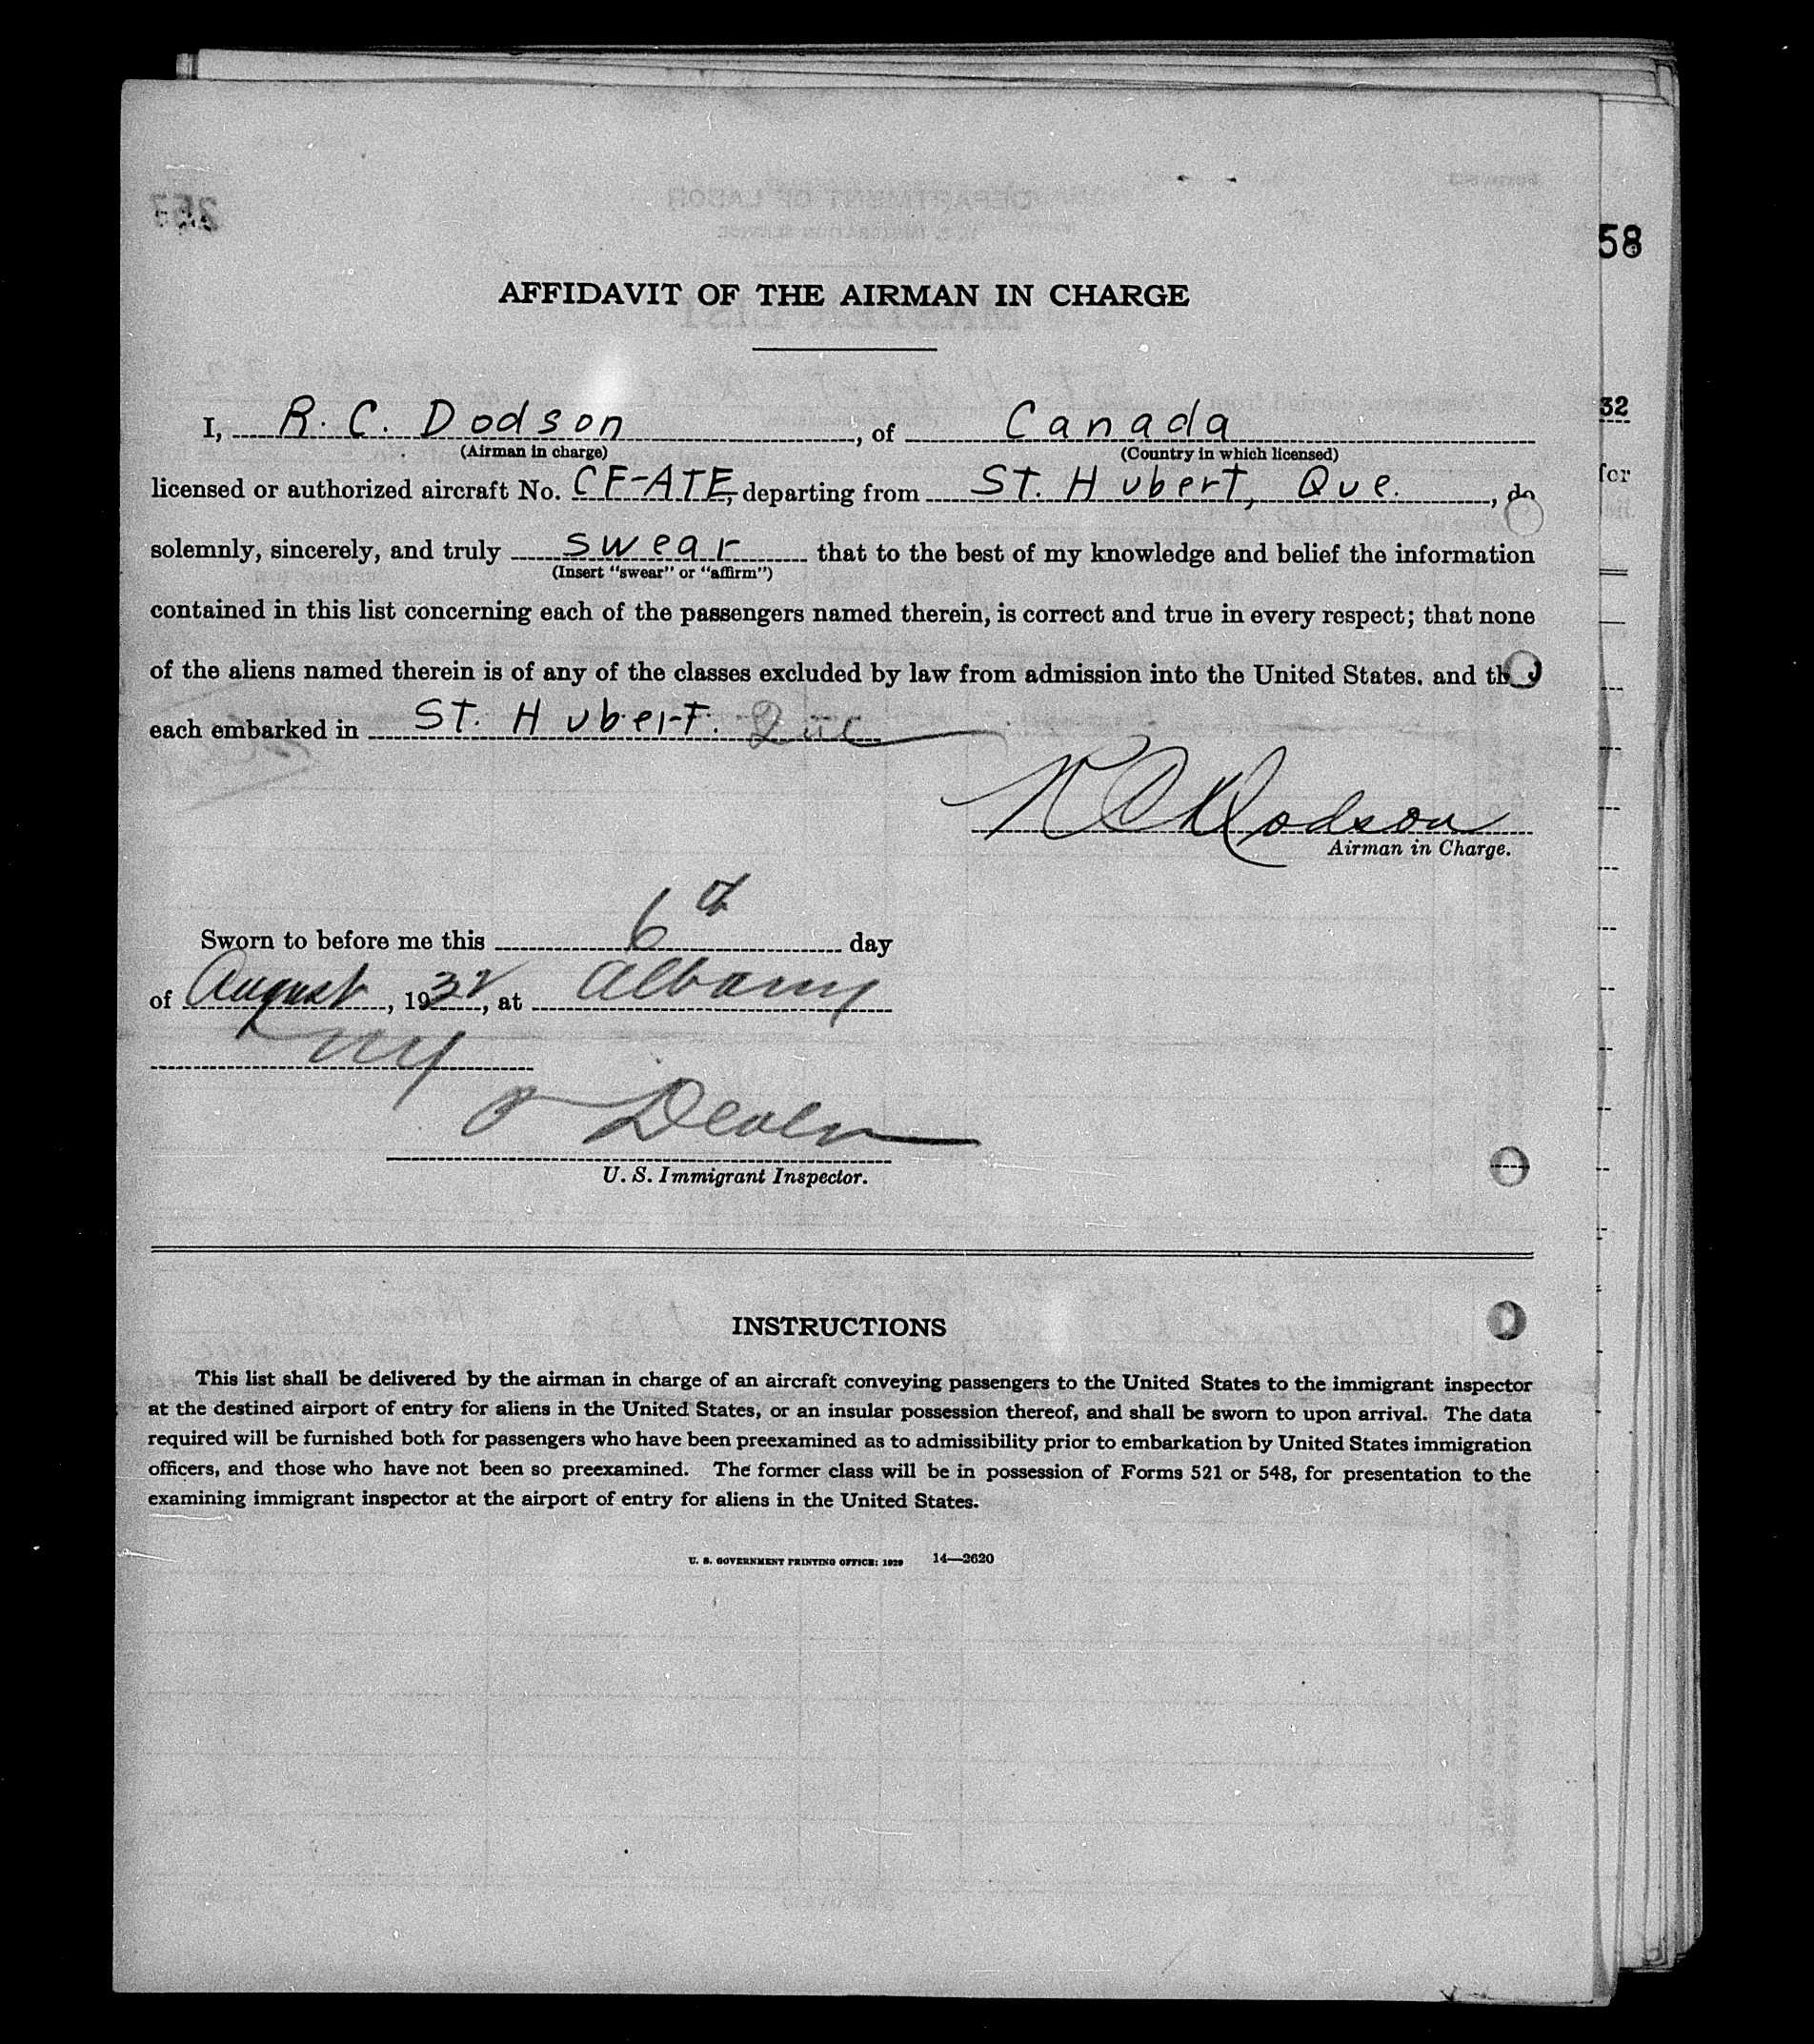 58
AFFIDAVIT OF THE AIRMAN IN CHARGE
I, R. C. Dodson, of Canada
(Airman in charge) (Country in which licensed)
32
licensed or authorized aircraft No. CF-ATE, departing from St. Hubert, Que., do
for
solemnly, sincerely, and truly swear that to the best of my knowledge and belief the information
(Insert "swear" or "affirm")
contained in this list concerning each of the passengers named therein, is correct and true in every respect; that none
of the aliens named therein is of any of the classes excluded by law from admission into the United States, and
each embarked in St. Hubert. Que
R C Dodson
Airman in Charge.
Sworn to before me this 6th day
of August, 1932, at Albany
NY
U. S. Immigrant Inspector.
INSTRUCTIONS
This list shall be delivered by the airman in charge of an aircraft conveying passengers to the United States to the immigrant inspector
at the destined airport of entry for aliens in the United States, or an insular possession thereof, and shall be sworn to upon arrival. The data
required will be furnished both for passengers who have been preexamined as to admissibility prior to embarkation by United States immigration
officers, and those who have not been so preexamined. The former class will be in possession of Forms 521 or 548, for presentation to the
examining immigrant inspector at the airport of entry for aliens in the United States.
U. S. GOVERNMENT PRINTING OFFICE: 1929 14—2620